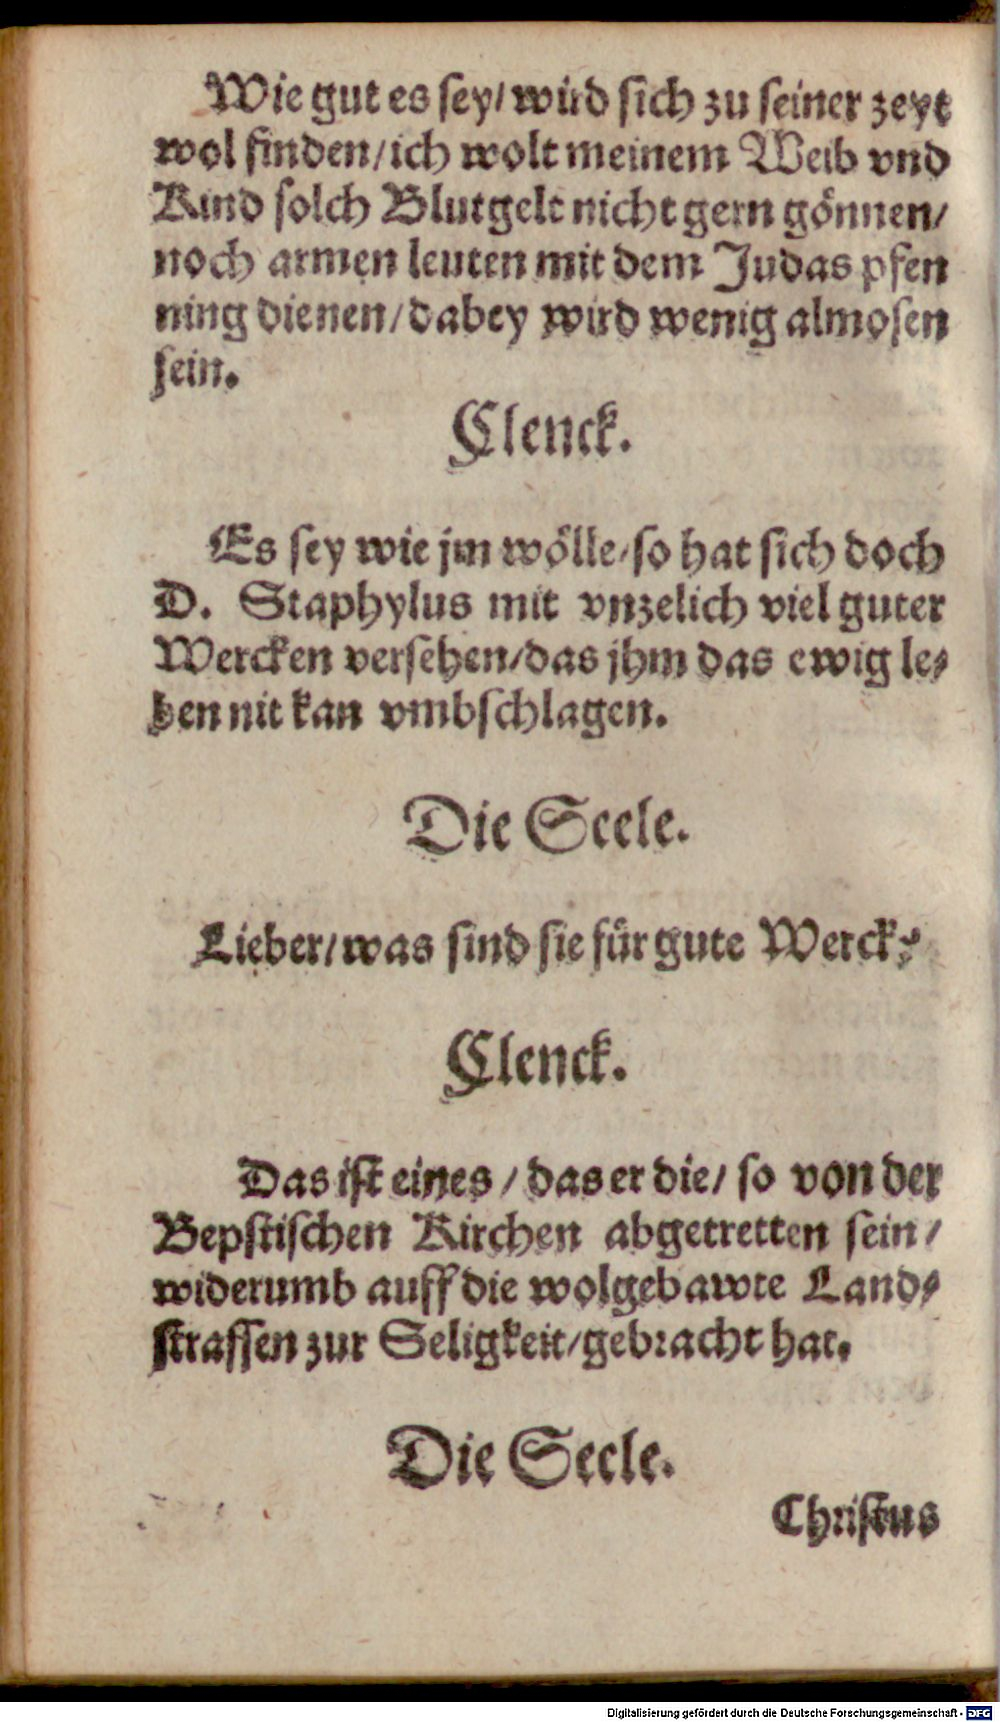 Wie gut es sey/ wird sich zu seiner zeyt
wol finden/ ich wolt meinem Weib vnd
Kind solch Blutgelt nicht gern gönnen/
noch armen leuten mit dem Judas pfen
ning dienen/ dabey wird wenig almosen
sein.
Clenck.
Es sey wie jm wölle/ so hat sich doch
D. Staphylus mit vnzelich viel guter
Wercken versehen/ das jhm das ewig le-
ben nit kan vmbschlagen.
Die Seele.
Lieber/ was sind sie für gute Werck?
Clenck.
Das ist eines/ das er die/ so von der
Bepstischen Kirchen abgetretten sein/
widerumb auff die wolgebawte Land-
strassen zur Seligkeit/ gebracht hat.
Die Seele.
Christus
Digitalisierung gefördert durch die Deutsche Forschungsgemeinschaft - DFG